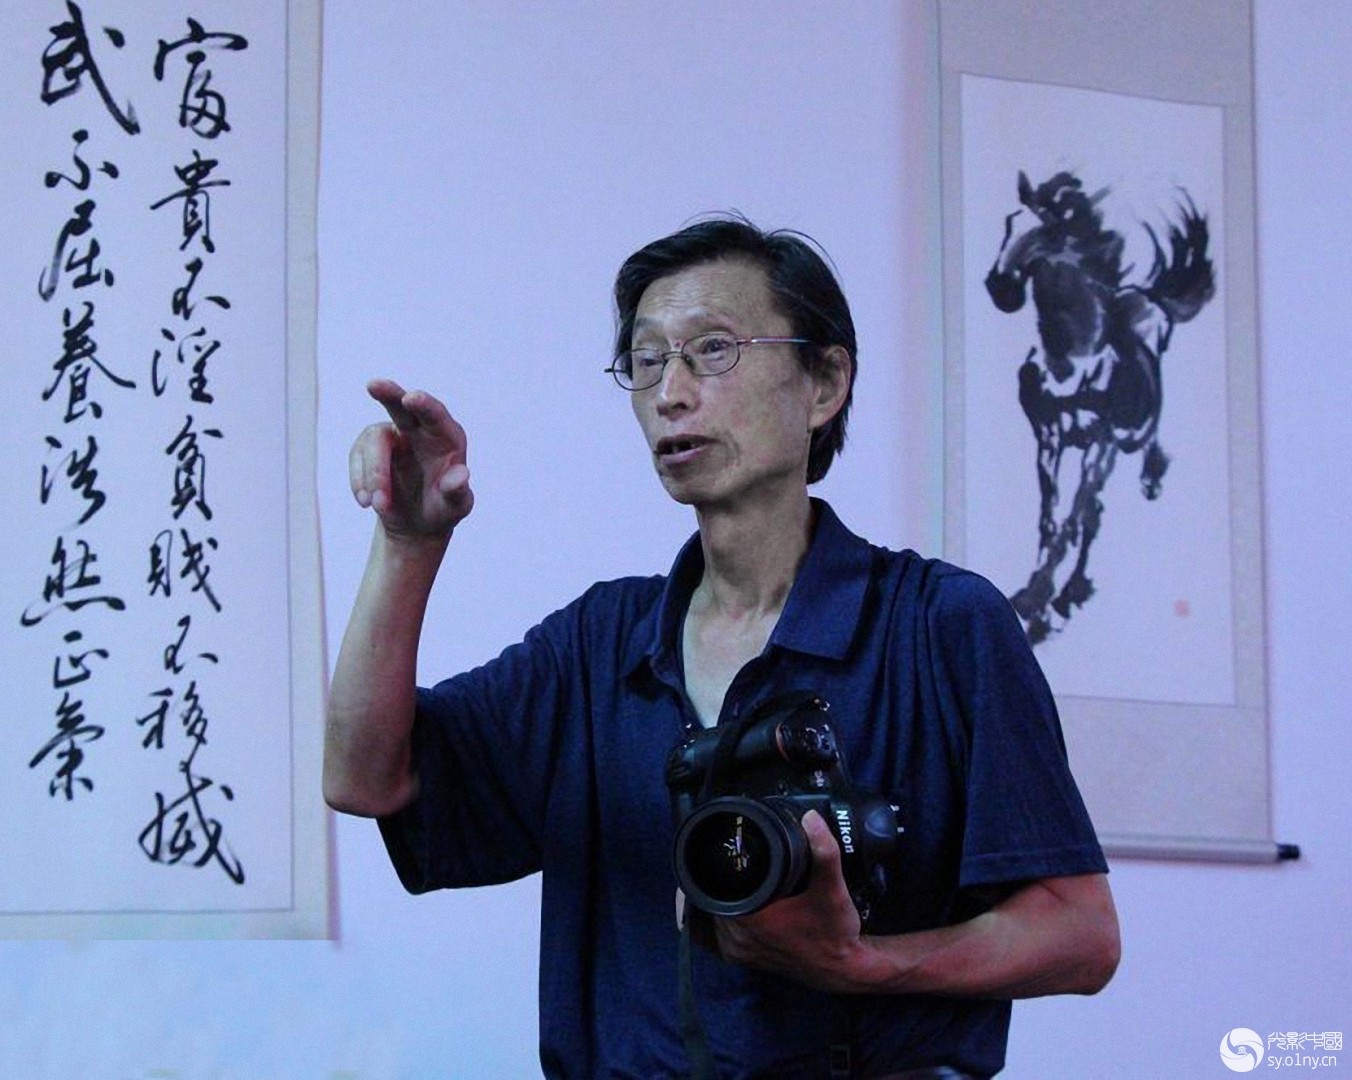 富貴不淫貧賤不移威
武不屈養浩然正氣
Nikon
光影中國
sy.o1ny.cn